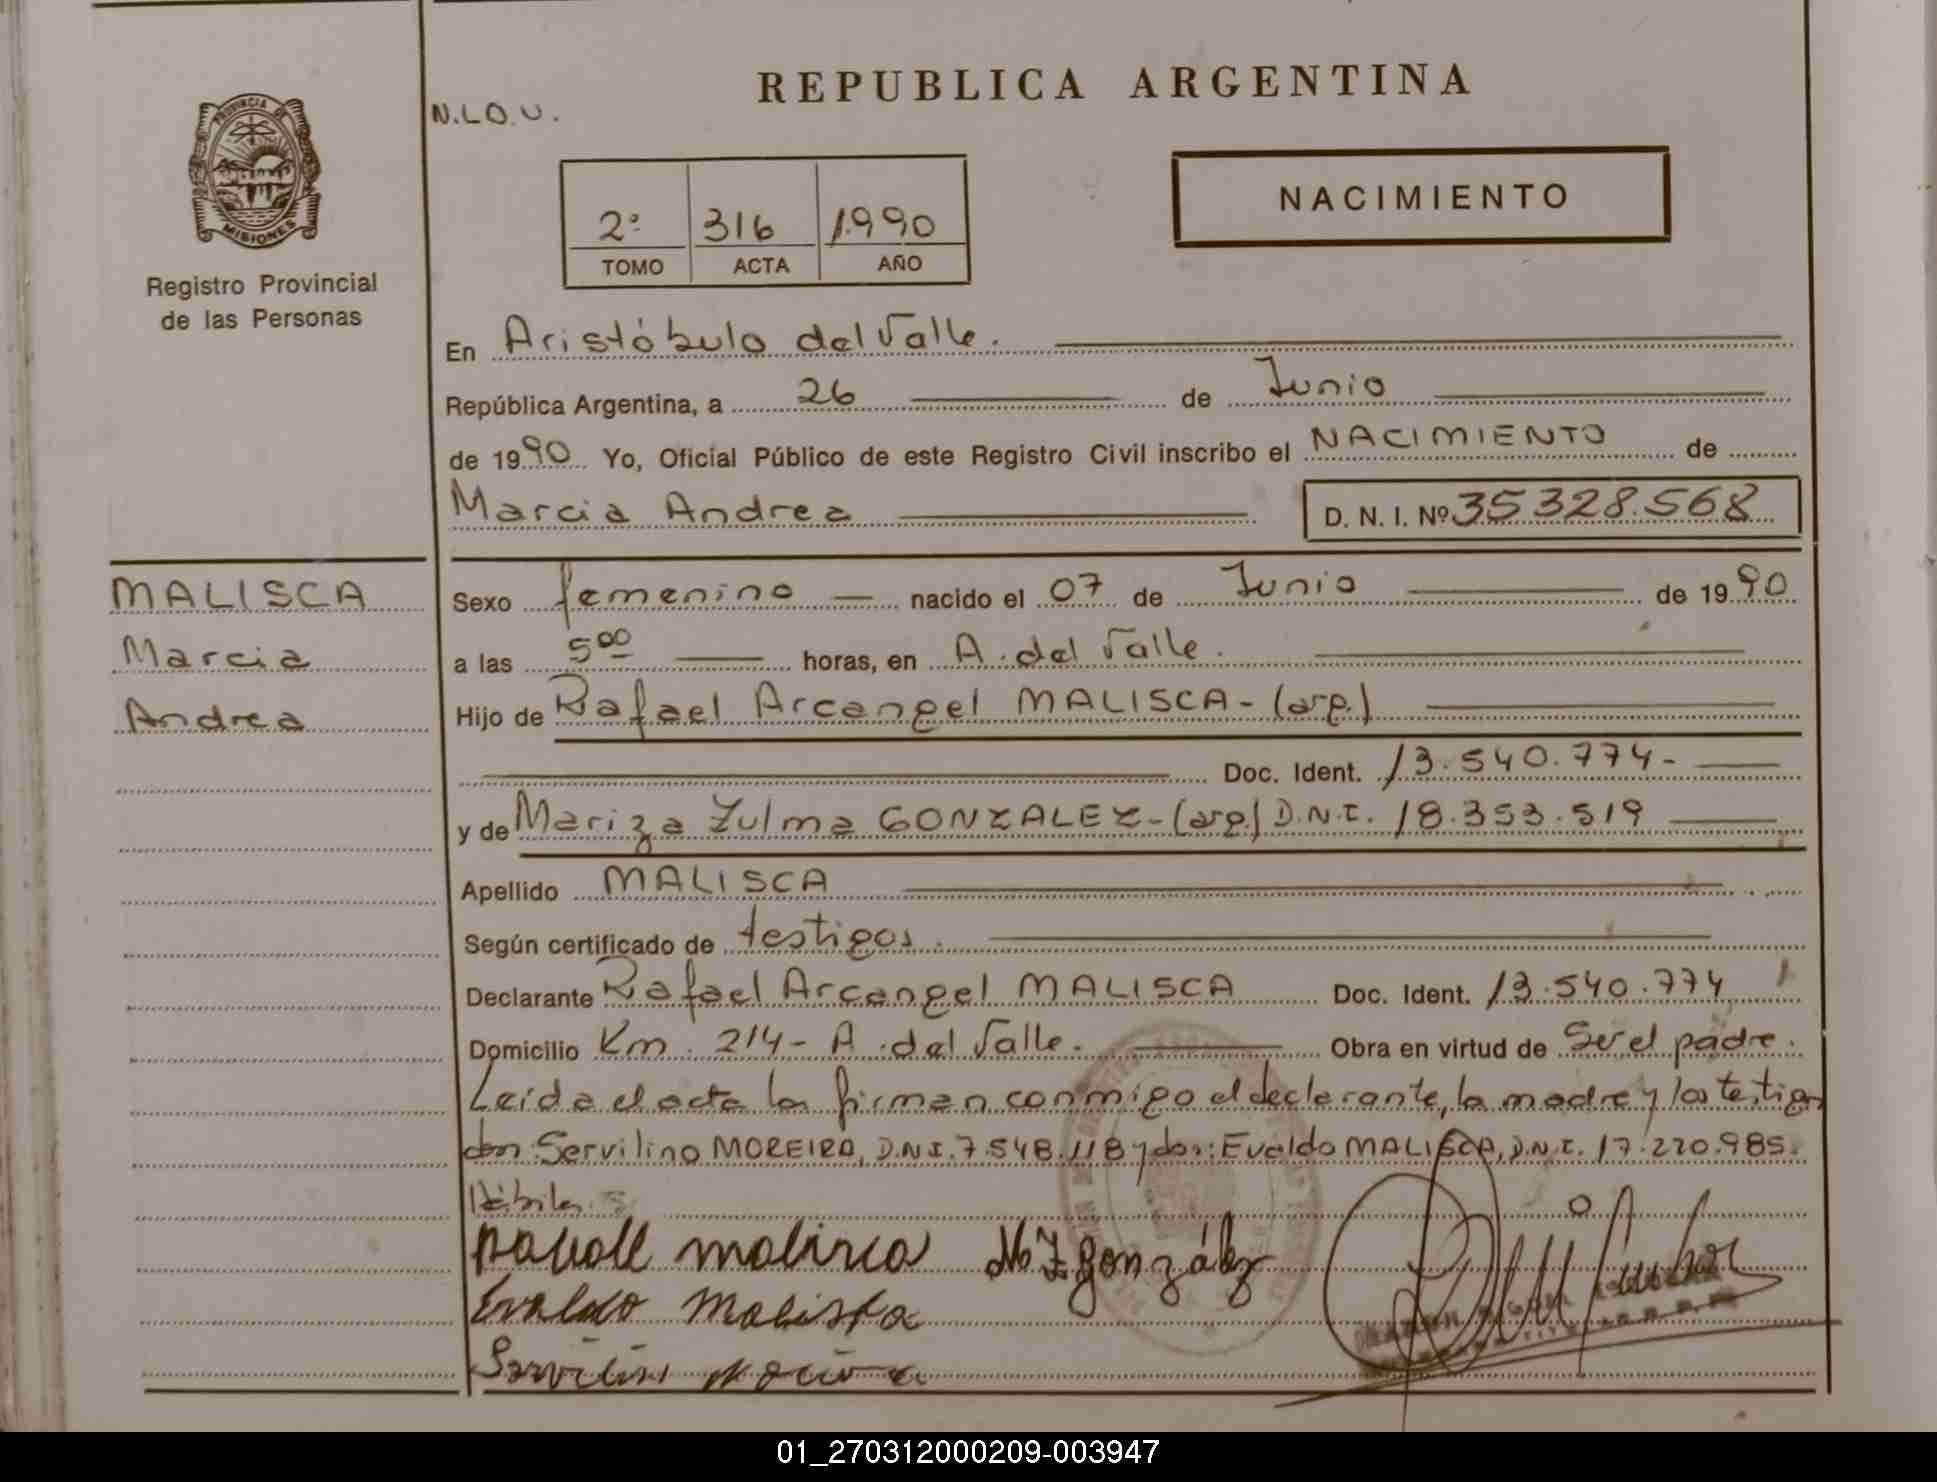 REPUBLICA ARGENTINA
N.L.O.U.
PROVINCIA DE
MISIONES
Registro Provincial
de las Personas
2º 316 1.990
TOMO ACTA AÑO
NACIMIENTO
En Aristóbulo del Valle.
República Argentina, a 26 de Junio
de 1990 Yo, Oficial Público de este Registro Civil inscribo el NACIMIENTO de
Marcia Andrea D. N. I. Nº 35328.568
MALISCA
Marcia
Andrea
Sexo femenino nacido el 07 de Junio de 1990
a las 5 00 horas, en A. del Valle.
Hijo de Rafael Arcangel MALISCA - (arg.)
Doc. Ident. 13.540.774-
y de Mariza Zulma GONZALEZ - (arg.) D.N.I. 18.353.519
Apellido MALISCA
Según certificado de testigos.
Declarante Rafael Arcangel MALISCA Doc. Ident. 13.540.774
Domicilio Km. 214 - A. del Valle. Obra en virtud de Ser el padre.
Leída el acta la firman conmigo el declarante, la madre y los testigos
don: Servilino MOREIRA, D.N.I. 7.548.118 y don: Evaldo MALISCA, D.N.I. 17.220.985.
Hábiles
malisca M Z gonzález
Evaldo Maliska
01_270312000209-003947